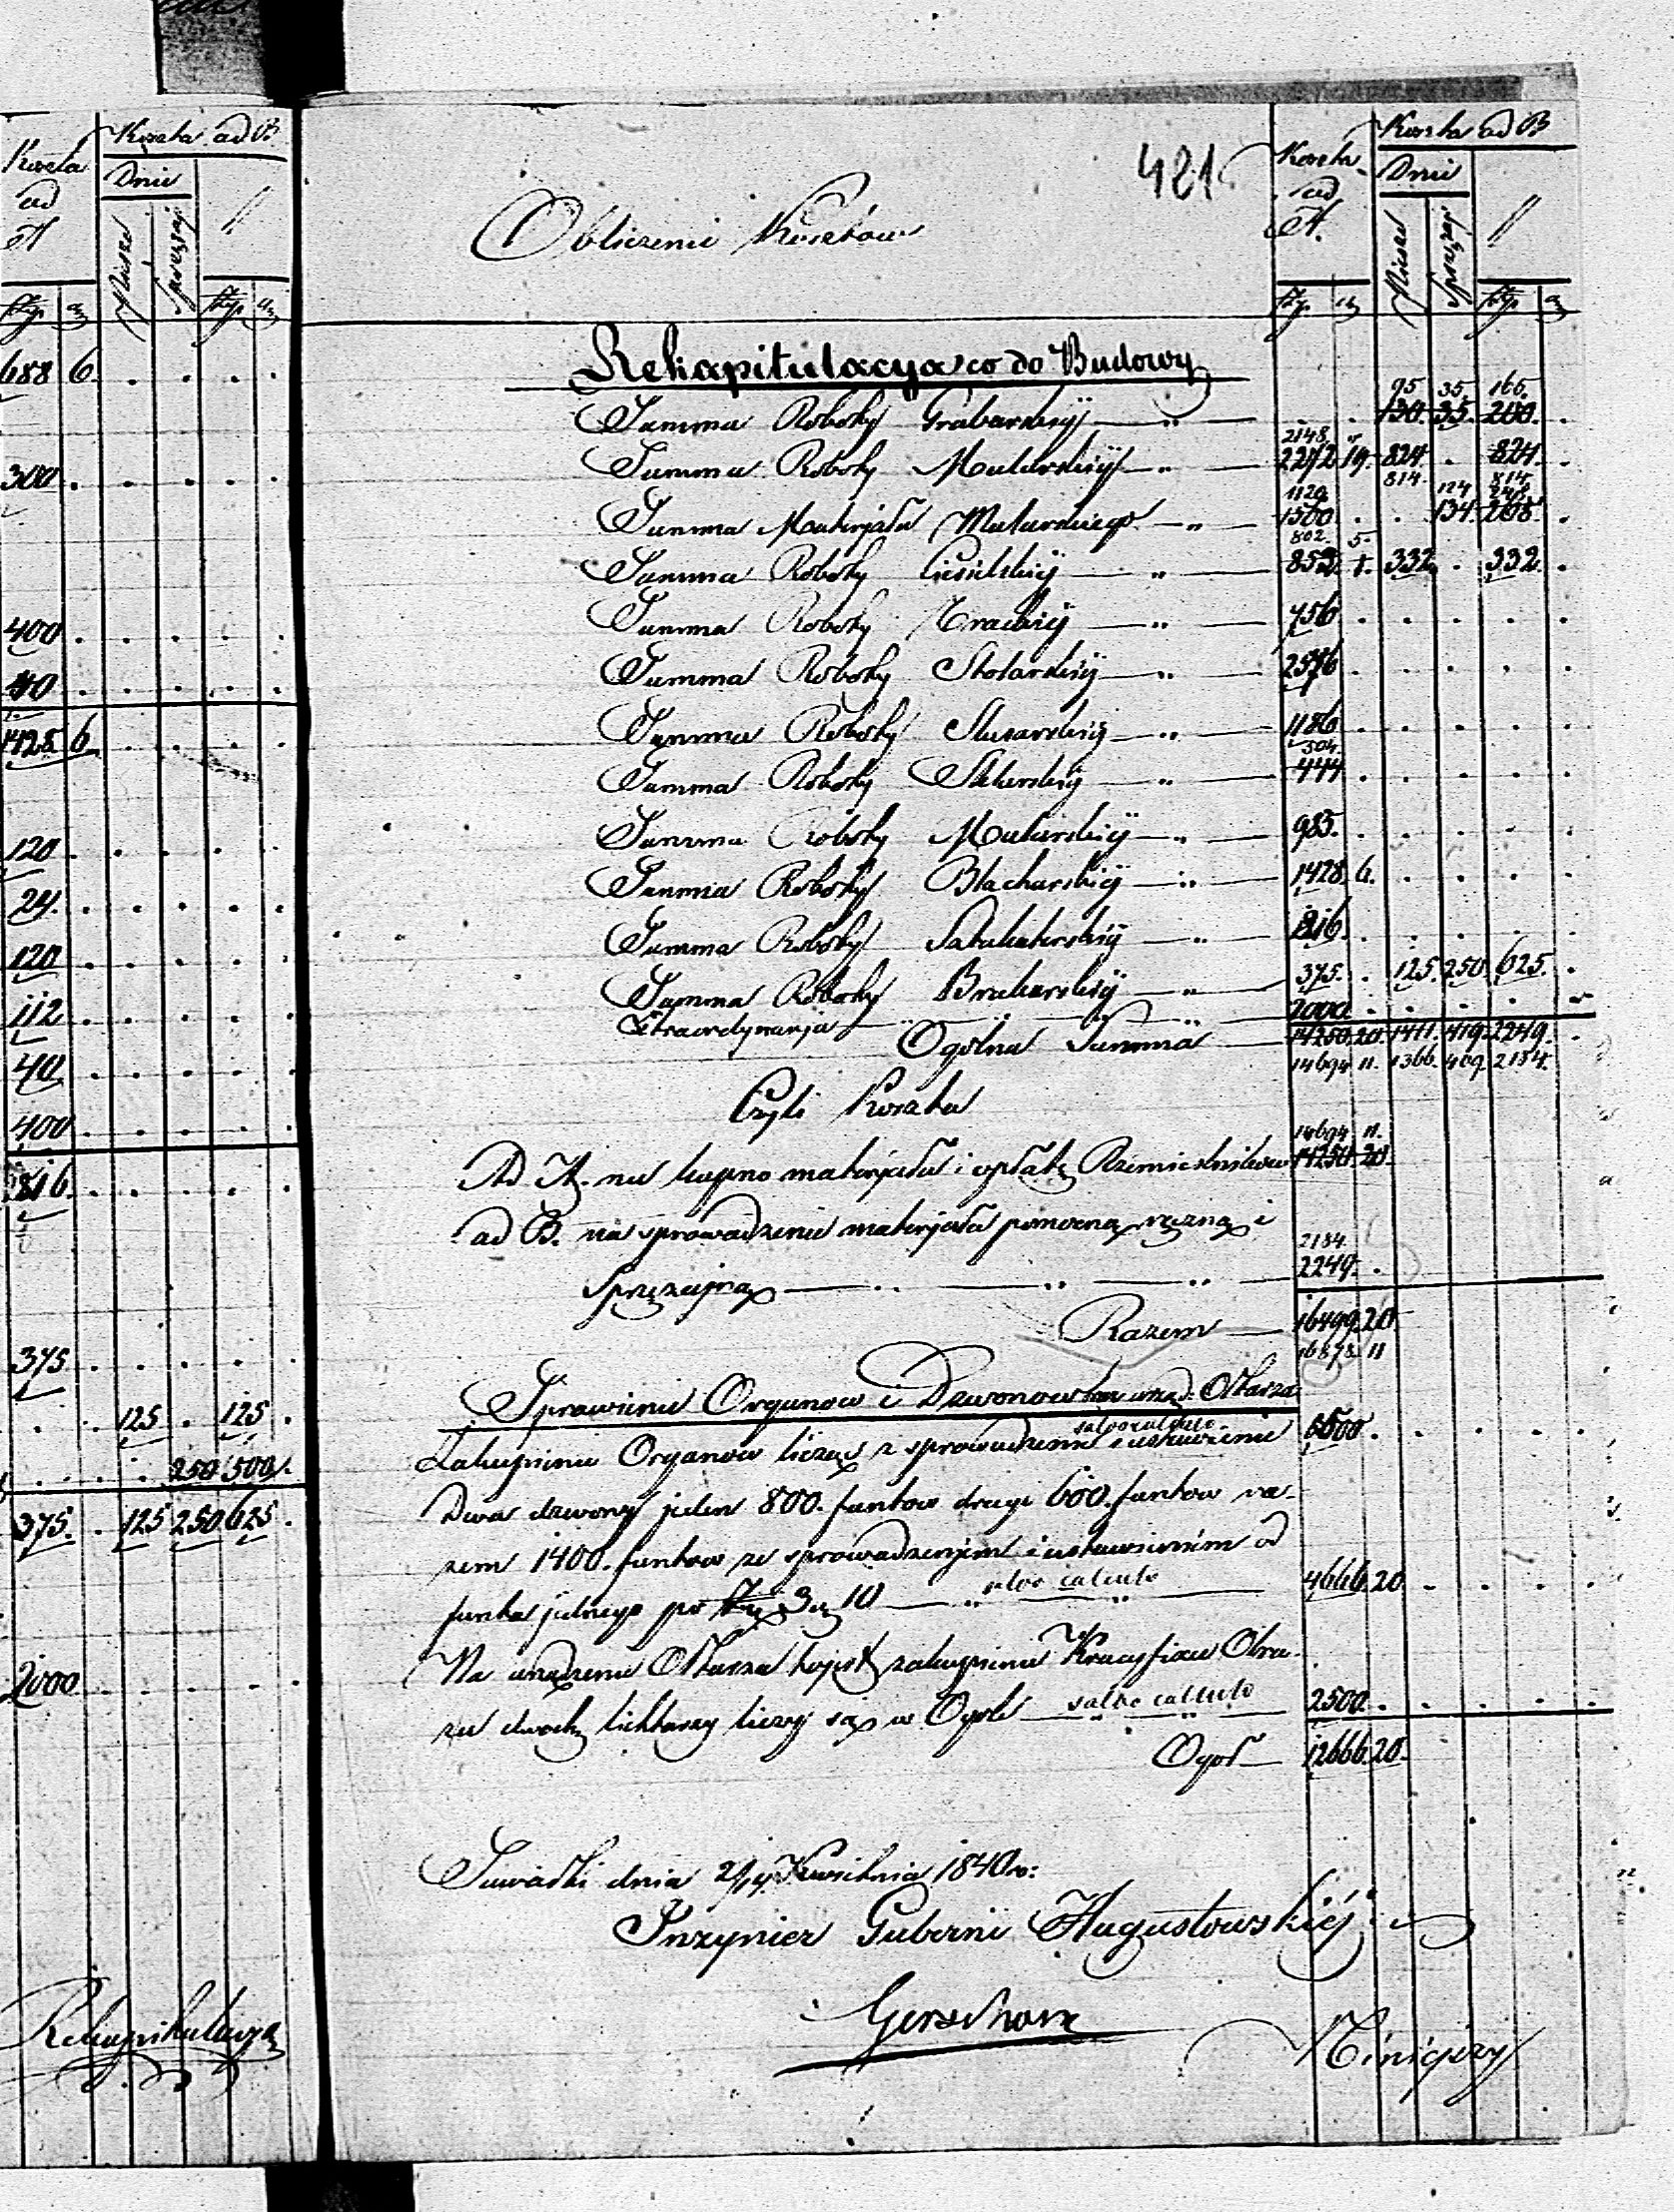 Koszta ad A
Koszta ad B
Dnie
piesze
sprzężaj
Złp gr
Złp gr
688 6
300
400
40
1425 6
120
24
120
112
40
400
816
375
125 125
250 500
375 125 250 625
2000
Rekapitulacya
421
Obliczenie Kosztów
Koszta ad A.
Koszta ad B
Dnie
piesze
sprzężaj
Złp gr
Złp gr
Rekapitulacya co do Budowy
95 35 165
Summa Roboty Grabarskiy 130 35 200
2148
Summa Roboty Mularskiy 2242 19 824 824
814 814
1120 124 248
Summa Materjału Mularskiego 1500 134 268
802 5
Summa Roboty Ciesielskiy 852 332 332
Summa Roboty Trackiy 756
Summa Roboty Stolarskiy 2576
Summa Roboty Slusarskiy 1186
504
Summa Roboty Sklarskiy 444
Summa Roboty Malarskiy 985
Summa Roboty Blacharskiy 1428 6
Summa Roboty 816
Summa Roboty Brukarskiy 375 125 250 625
Extraordynarja 2000
Ogólna Summa 14250 20 1411 419 2249
14694 11 1366 409 2184
Czyli Koszta
14694 11
Ad A. na kupno materjału i opłatę Rzemieslników 14250 20
ad B. na sprowadzenie materjału pomocną ręczną i
2184
Sprzężajną 2249
Razem 16499 20
16878 11
Sprawienie Organow i Dzwonow urząd: Ołtarza
salvo calculo
Zakupienie Organów licząc z sprowadzeniem i ustawieniem 5500
Dwa dzwony jeden 800. funtow drugi 600. funtow ra-
zem 1400. funtow ze sprowadzenjem i ustawieniem od
funta jednego po Złp 3 gr 10 salvo calculo 4666 20
Na urządzenie Ołtarza tojest zakupienie Krucyfixu Obra-
zu dwoch lichtarzy liczy się w Ogole salvo calculo 2500
Ogół 12666 20
Suwałki dnia 2/14 Kwietnia 1840 r:
Inzynier Gubernii Augustowskiéj
Gerschow
Ninięjszy